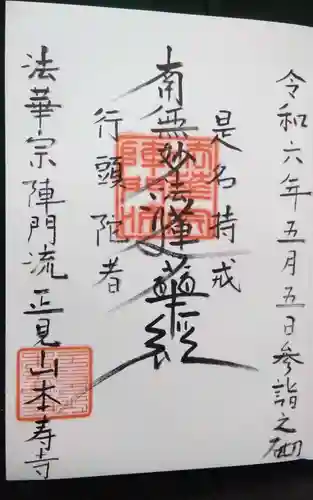 令和六年五月五日参詣之砌
是名持戒
南無妙法蓮華経
行頭陀者
法華宗陣門流 正見山本寿寺